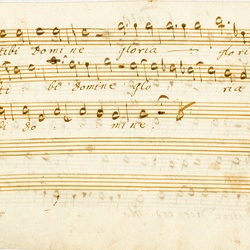 tibi domine gloria glori
tibi bi domine glo ria
bi do mine.